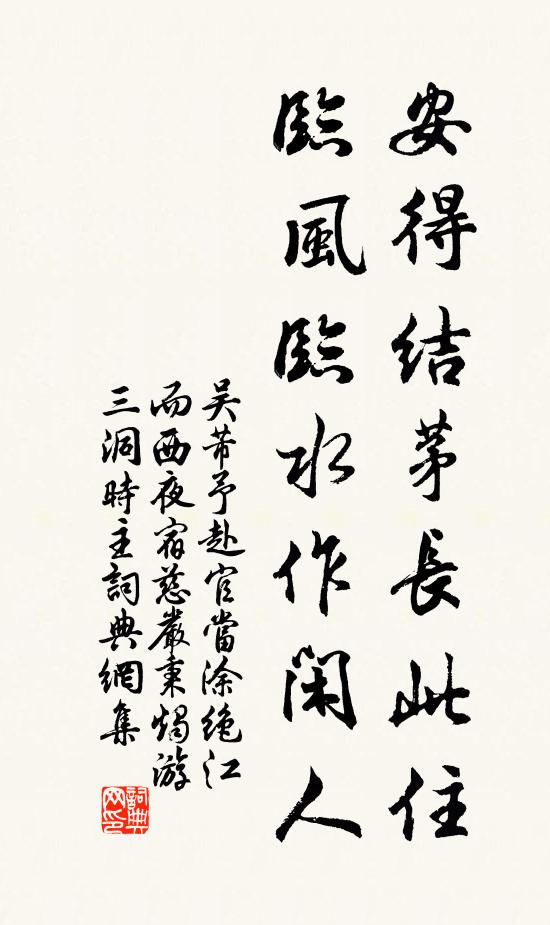 安得結茅長此住
臨風臨水作閑人
吴芾予赴官當涂绝江
而西夜宿慈嚴秉燭游
三洞時主詞典網集
詞典网印